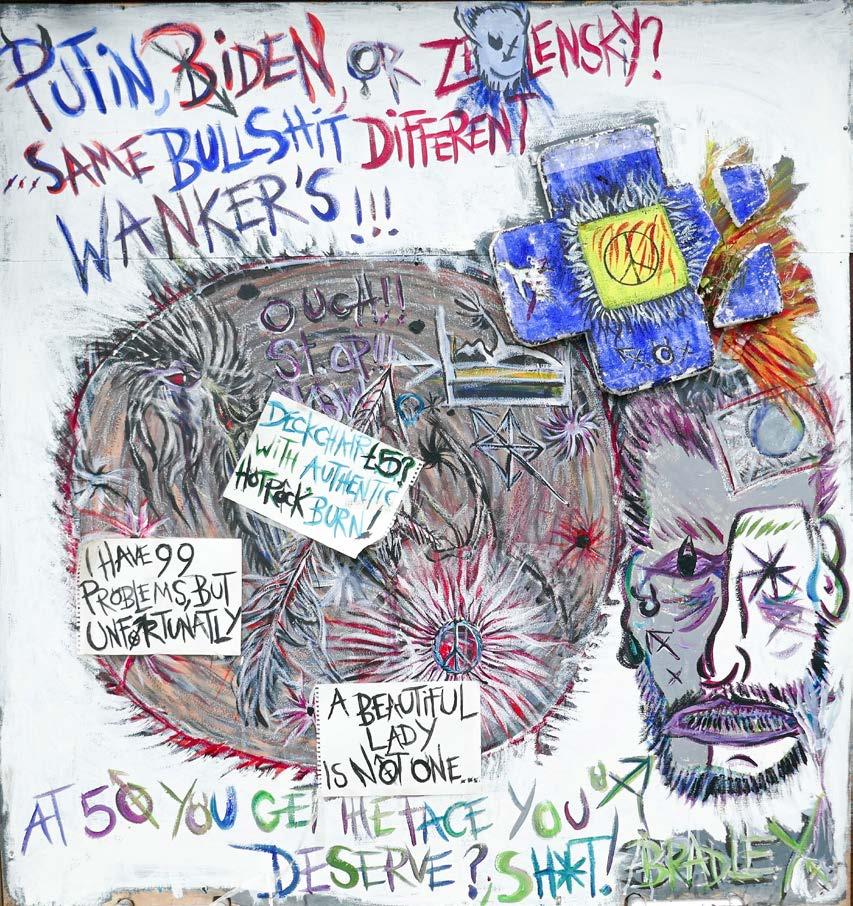 PUTIN, BIDEN, OR ZELENSKY?
...SAME BULLSHIT DIFFERENT
WANKER'S!!!
OUCH!!
STOP!!
NOW
DECKCHAIR £5?
WITH AUTHENTIC
'HOTROCK' BURN!
I HAVE 99
PROBLEMS, BUT
UNFORTUNATLY
A BEAUTIFUL
LADY
IS NOT ONE...
AT 50 YOU GET THE FACE YOU
DESERVE?, SH*T!
BRADLEY